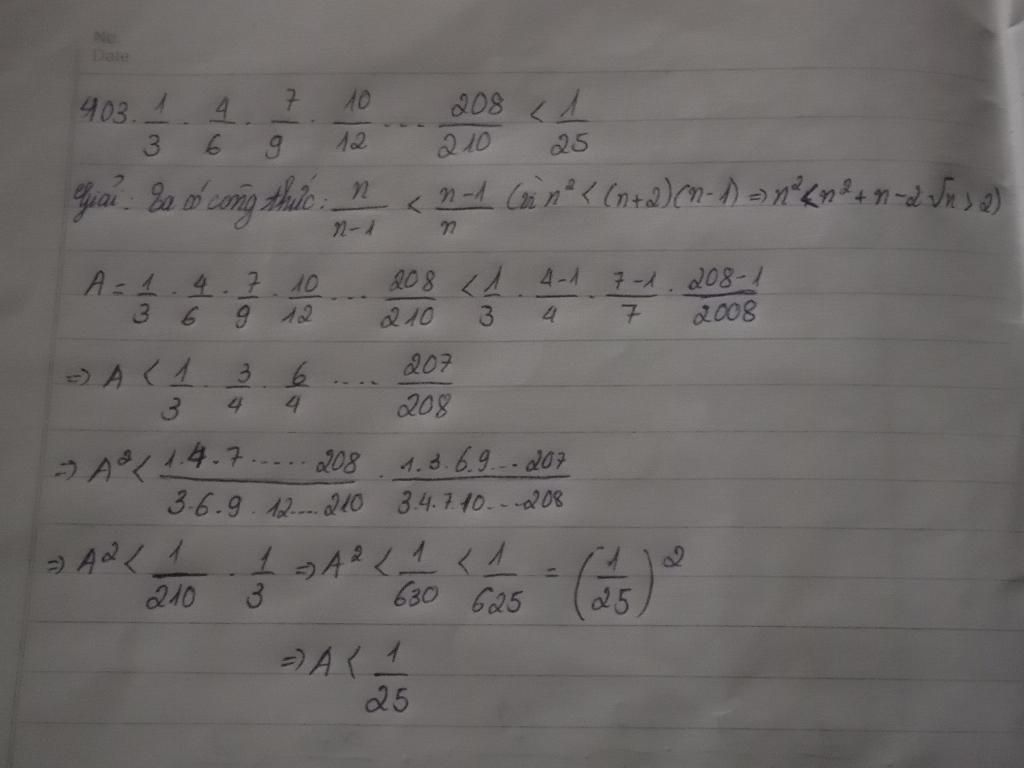 No
Date
403. 1/3 . 4/6 . 7/9 . 10/12 ... 208/210 < 1/25
Giải: Ta có công thức: n/n-1 < n-1/n (vì n² < (n+2)(n-1) => n² < n² + n - 2 √n > 2)
A = 1/3 . 4/6 . 7/9 . 10/12 ... 208/210 < 1/3 . 4-1/4 . 7-1/7 . 208-1/2008
=> A < 1/3 . 3/4 . 6/4 .... 207/208
=> A² < 1.4.7.....208/3.6.9.12...210 . 1.3.6.9...207/3.4.7.10...208
=> A² < 1/210 . 1/3 => A² < 1/630 < 1/625 = (1/25)²
=> A < 1/25